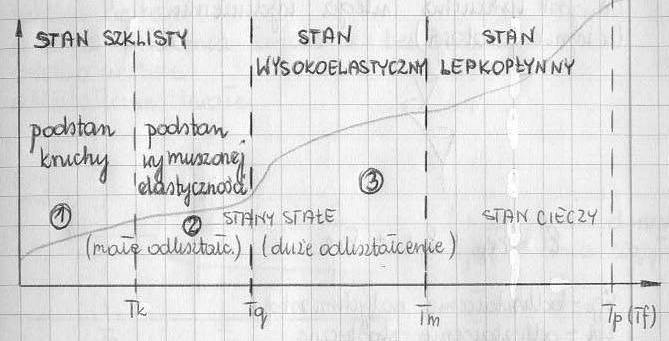 STAN SZKLISTY
STAN
WYSOKOELASTYCZNY
STAN
LEPKOPŁYNNY
podstan
kruchy
podstan
wymuszonej
elastyczności
1
2
3
STANY STAŁE
(małe odkształc.) (duże odkształcenie)
STAN CIECZY
Tk
Tg
Tm
Tp (Tf)